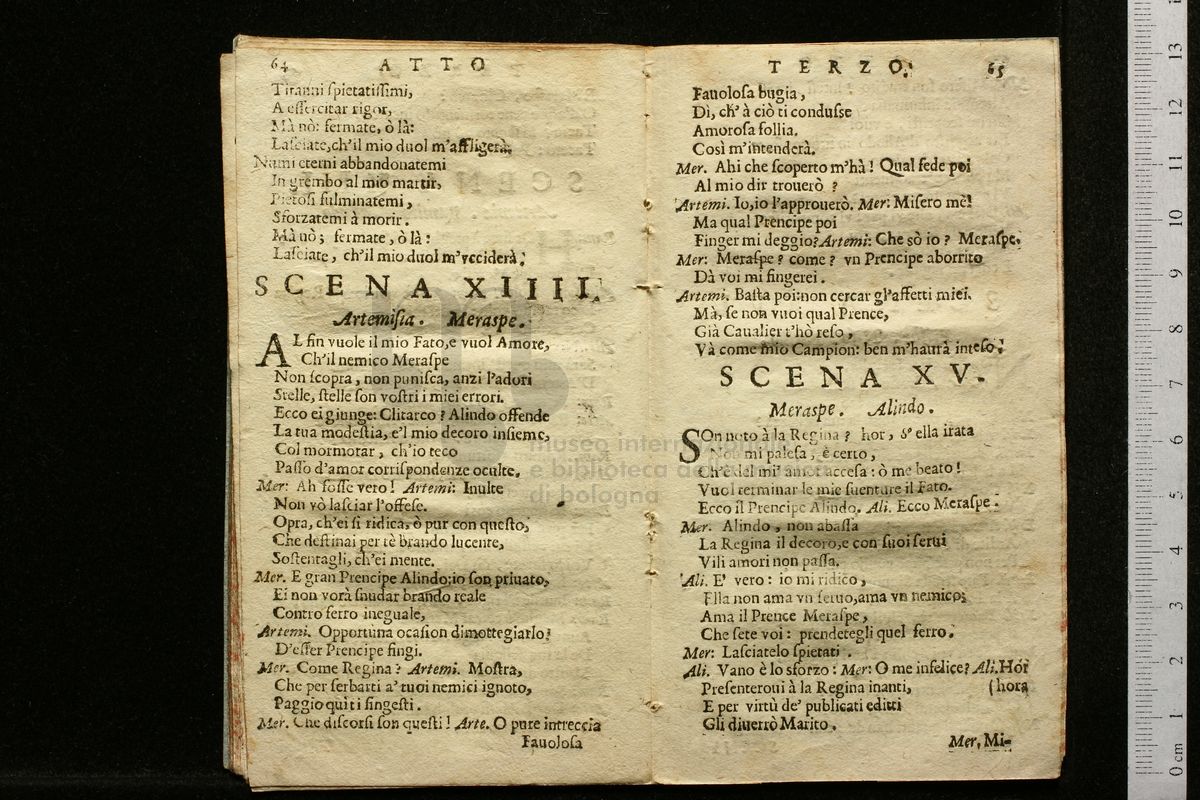 64 ATTO
Tiranni ſpietatiſſimi,
A eſſercitar rigor,
Mà nò: fermate, ò là:
Laſciate, ch'il mio duol m'affligerà.
Numi eterni abbandonatemi
In grembo al mio martir,
Pietoſi fulminatemi,
Sforzatemi à morir.
Mà nò; fermate, ò là:
Laſciate, ch'il mio duol m'vcciderà.
SCENA XIIII.
Artemiſia. Meraſpe.
AL fin vuole il mio Fato,e vuol Amore,
Ch'il nemico Meraſpe
Non ſcopra, non puniſca, anzi l'adori
Stelle, ſtelle ſon voſtri i miei errori.
Ecco ei giunge: Clitarco? Alindo offende
La tua modeſtia, e'l mio decoro inſieme,
Col mormotar, ch'io teco
Paſſo d'amor corriſpondenze oculte.
Mer: Ah foſſe vero! Artemi: Inulte
Non vò laſciar l'offeſe.
Opra, ch'ei ſi ridica, ò pur con queſto,
Che deſtinai per tè brando lucente,
Soſtentagli, ch'ei mente.
Mer. E gran Prencipe Alindo;io ſon priuato,
Ei non vorà ſnudar brando reale
Contro ferro ineguale,
Artemi. Opportuna ocaſion dimottegiarlo!
D'eſſer Prencipe fingi.
Mer. Come Regina? Artemi. Moſtra,
Che per ſerbarti a' tuoi nemici ignoto,
Paggio qui ti fingeſti.
Mer. Che diſcorſi ſon queſti! Arte. O pure intreccia
Fauoloſa
TERZO. 65
Fauoloſa bugia,
Dì, ch' à ciò ti conduſſe
Amoroſa follia.
Così m'intenderà.
Mer. Ahi che ſcoperto m'hà! Qual fede poi
Al mio dir trouerò ?
Artemi. Io,io l'approuerò. Mer: Miſero mè!
Ma qual Prencipe poi
Finger mi deggio? Artemi: Che sò io? Meraſpe.
Mer: Meraſpe? come? vn Prencipe aborrito
Dà voi mi fingerei.
Artemi. Baſta poi:non cercar gl'affetti miei.
Mà, ſe non vuoi qual Prence,
Già Caualier t'hò reſo,
Và come mio Campion: ben m'haurà inteſo.
SCENA XV.
Meraſpe. Alindo.
SOn noto à la Regina? hor, s'ella irata
Non mi paleſa, è certo,
Ch'è del mi' amor acceſa: ò me beato!
Vuol terminar le mie ſuenture il Fato.
Ecco il Prencipe Alindo. Ali. Ecco Meraſpe.
Mer. Alindo, non abaſſa
La Regina il decoro,e con ſuoi ſerui
Vili amori non paſſa.
Ali. E' vero: io mi ridico,
Ella non ama vn ſeruo,ama vn nemico;
Ama il Prence Meraſpe,
Che ſete voi: prendetegli quel ferro.
Mer: Laſciatelo ſpietati.
Ali. Vano è lo sforzo: Mer: O me infelice? Ali. Hor
Preſenteroui à la Regina inanti, (hora
E per virtù de' publicati editti
Gli diuerrò Marito.
Mer. Mi-
museo internazionale
e biblioteca della musica
di bologna
0 cm 1 2 3 4 5 6 7 8 9 10 11 12 13